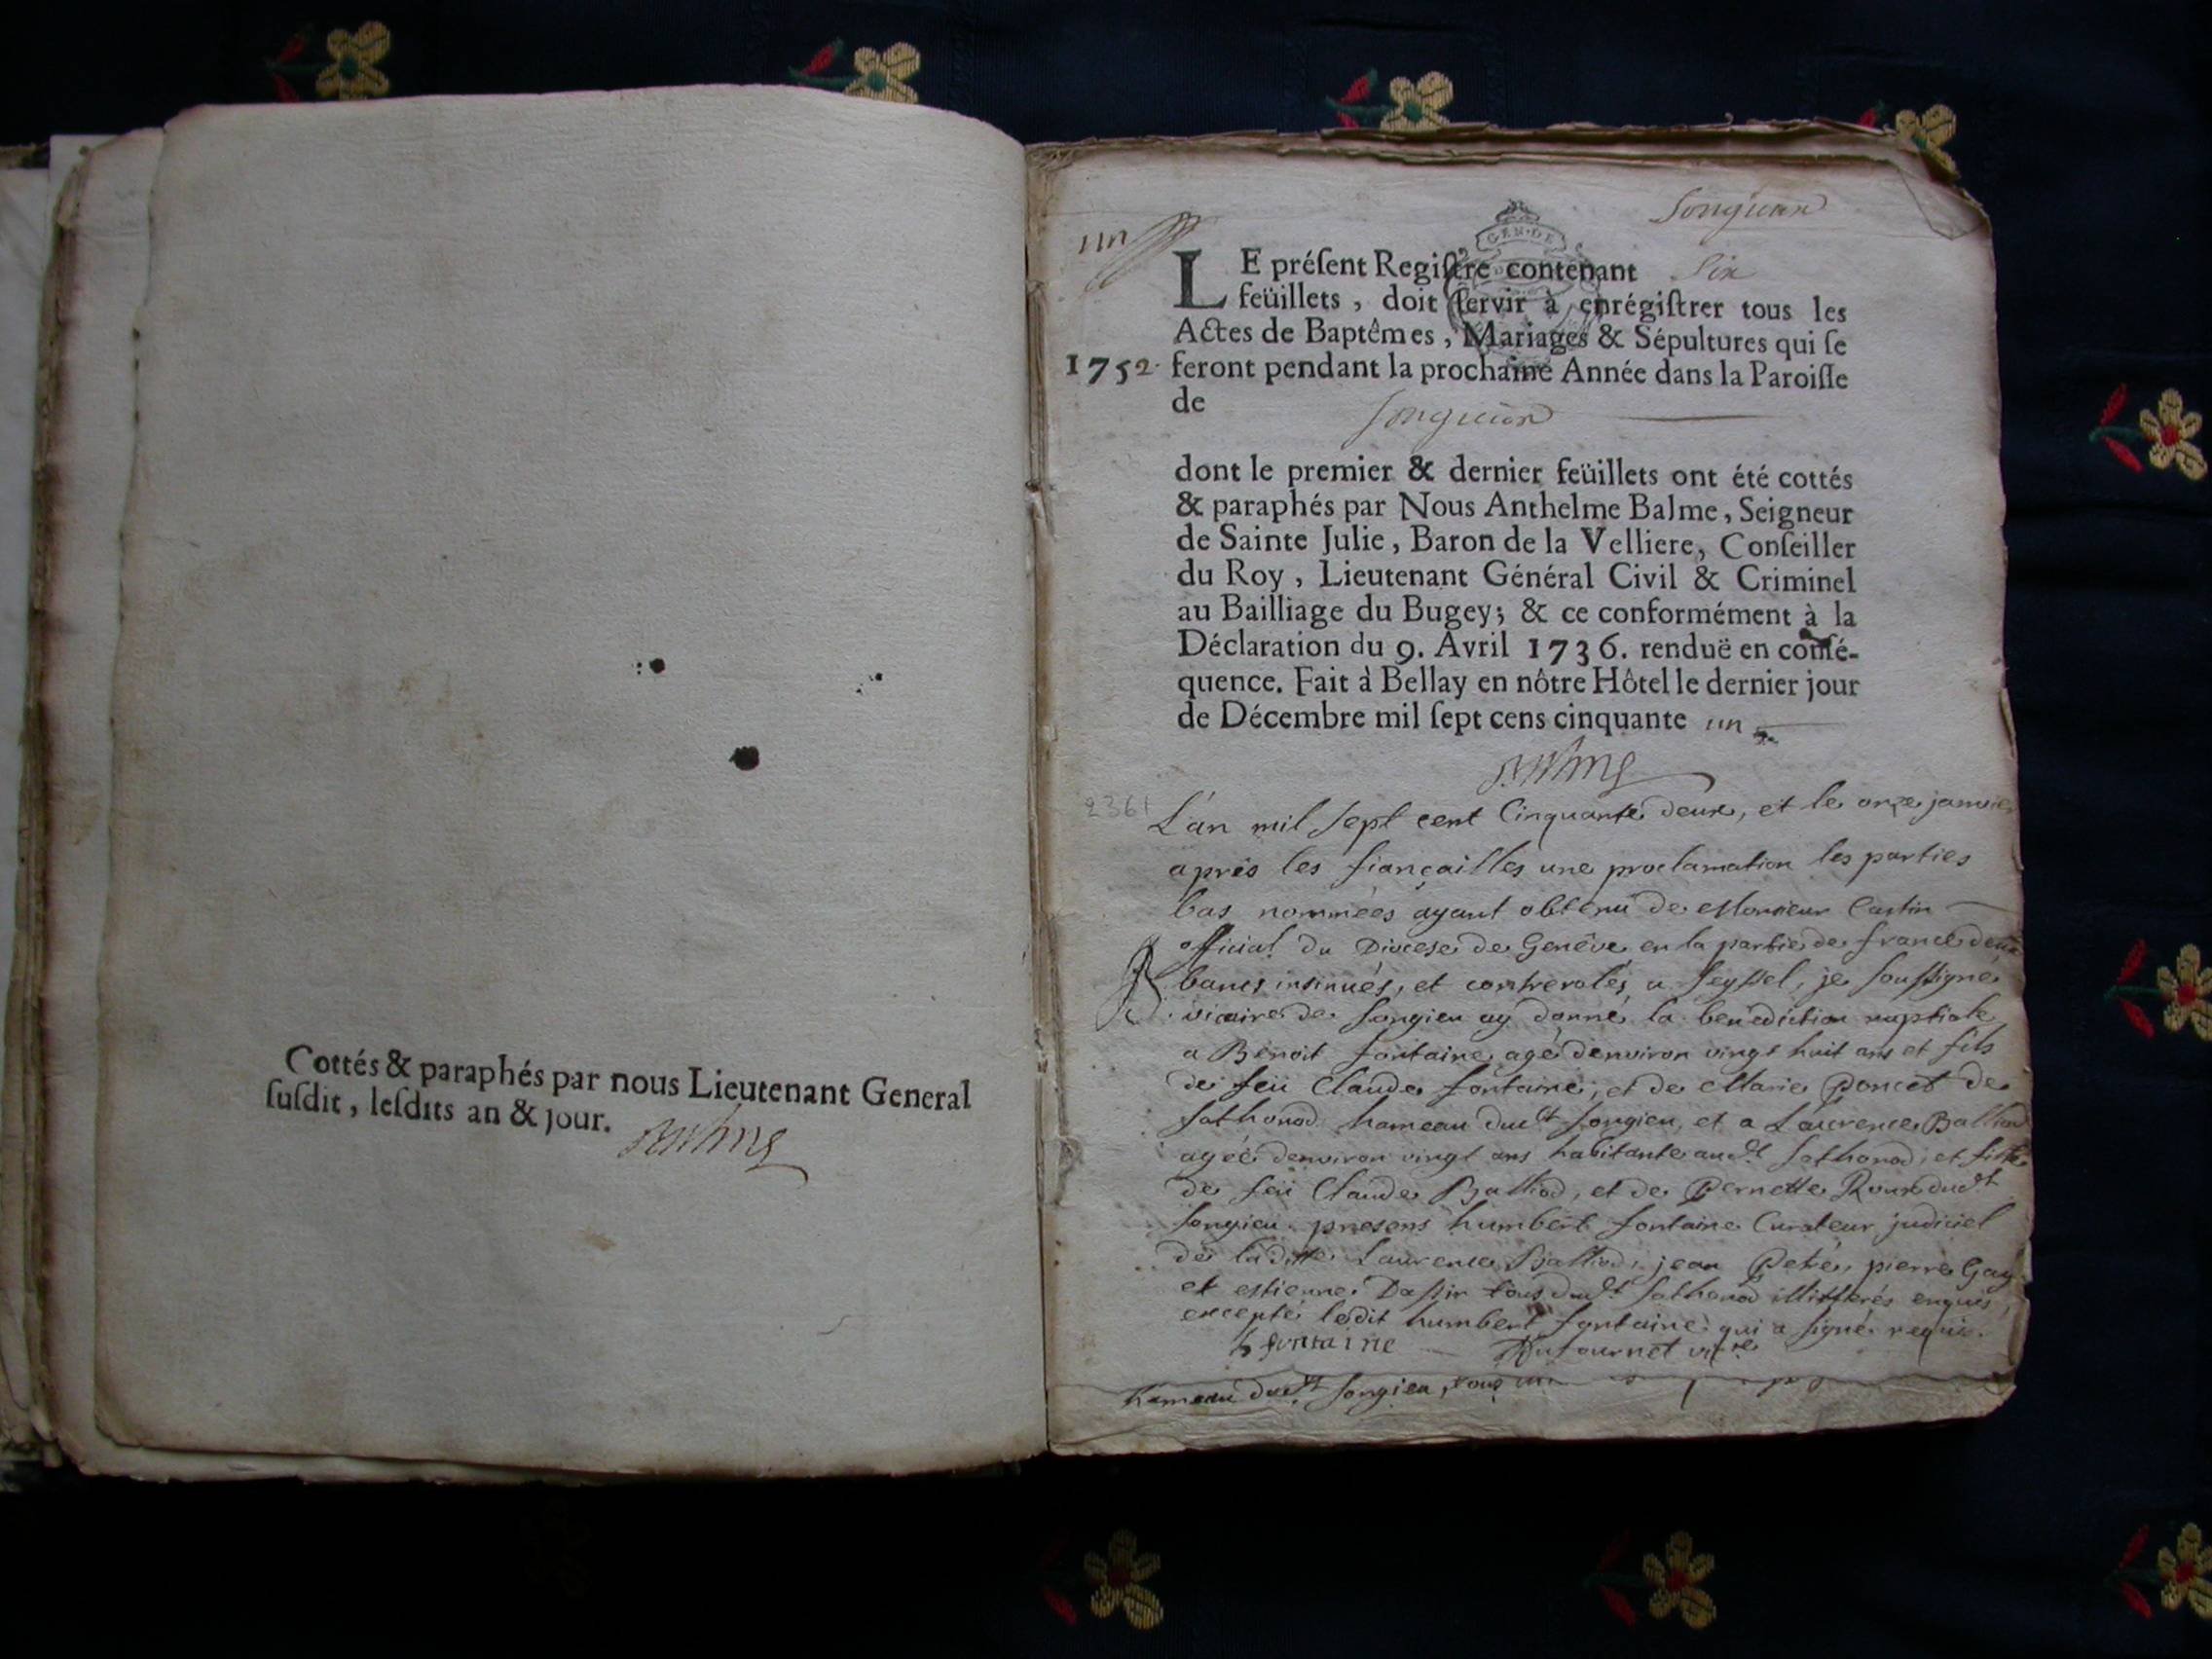 Cottés & paraphés par nous Lieutenant General
ſuſdit, leſdits an & jour.
Balme
Songieux
un
GEN·DE
LE préſent Regiſtre contenant Six
feüillets, doit ſervir à enrégiſtrer tous les
Actes de Baptêmes, Mariages & Sépultures qui ſe
1752. feront pendant la prochaine Année dans la Paroiſſe
de Songieux
dont le premier & dernier feüillets ont été cottés
& paraphés par Nous Anthelme Balme, Seigneur
de Sainte Julie, Baron de la Velliere, Conſeiller
du Roy, Lieutenant Général Civil & Criminel
au Bailliage du Bugey; & ce conformément à la
Déclaration du 9. Avril 1736. renduë en conſé-
quence. Fait à Bellay en nôtre Hôtel le dernier jour
de Décembre mil ſept cens cinquante un
Balme
2361
L'an mil sept cent cinquante deux, et le onze janvier
aprés les fiançailles une proclamation les parties
bas nommées ayant obtenu de Monsieur Castin
official du Diocese de Genêve en la partie de france deux
bancs insinués, et contrerolés a Seyssel, je soussigné
vicaire de Songieu ay donné la benediction nuptiale
a Benoit fontaine agé denviron vingt huit ans et fils
de feü Claude fontaine, et de Marie Poncet de
Sothonod hameau dudt Songieu, et a Laurence Balliod
agée denviron vingt ans habitante audt Sothonod, et fille
de feü Claude Balliod, et de Pernette Roux dudt
Songieu. presens humbert fontaine Curateur judiciel
de laditte Laurence Balliod, jean Petre, pierre Gay
et estienne Dassin tous dudt Sothonod illitterés enquis,
excepté ledit humbert fontaine qui a signé requis.
h fontaine Dufournet vicre
hameau dudt Songieu, tous